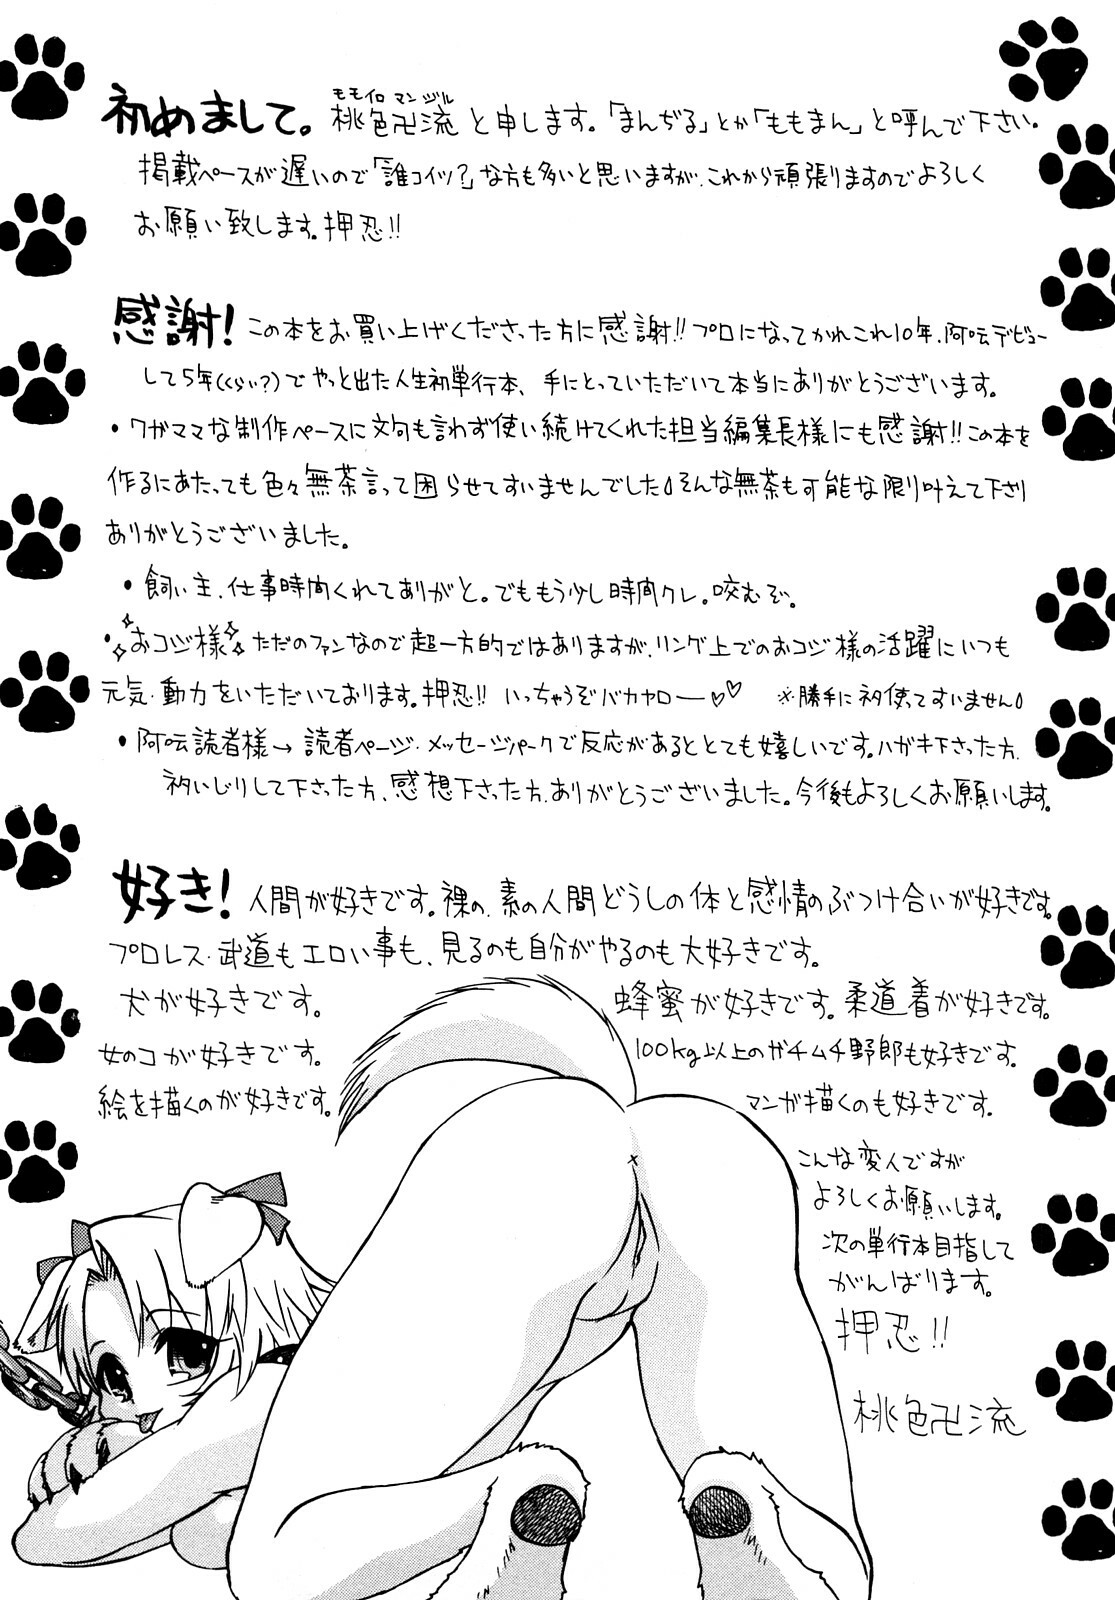 初めまして。桃色卍流と申します。「まんぢる」とか「ももまん」と呼んで下さい。
モモイロ マンヂル
掲載ペースが遅いので「誰コイツ?」な方も多いと思いますが、これから頑張りますのでよろしく
お願い致します。押忍!!
感謝!この本をお買い上げくださった方に感謝!!プロになってかれこれ10年、阿吽デビュー
して5年(くらい?)でやっと出た人生初単行本、手にとっていただいて本当にありがとうございます。
・ワガママな制作ペースに文句も言わず使い続けてくれた担当編集長様にも感謝!!この本を
作るにあたっても色々無茶言って困らせてすいませんでした。そんな無茶も可能な限り叶えて下さり
ありがとうございました。
・飼い主、仕事時間くれてありがと。でももう少し時間クレ。咬むぞ。
・おコジ様 ただのファンなので超一方的ではありますが、リング上でのおコジ様の活躍にいつも
元気・動力をいただいております。押忍!! いっちゃうぞバカヤロー♡♡ ※勝手にネタ使ってすいません
・阿吽読者様→読者ページ・メッセージパークで反応があるととても嬉しいです。ハガキ下さった方、
ネタいじりして下さった方、感想下さった方、ありがとうございました。今後もよろしくお願いします。
好き!人間が好きです。裸の、素の人間どうしの体と感情のぶつけ合いが好きです。
プロレス・武道もエロい事も、見るのも自分がやるのも大好きです。
犬が好きです。
女のコが好きです。
絵を描くのが好きです。
蜂蜜が好きです。柔道着が好きです。
100kg以上のガチムチ野郎も好きです。
マンガ描くのも好きです。
こんな変人ですが
よろしくお願いします。
次の単行本目指して
がんばります。
押忍!!
桃色卍流